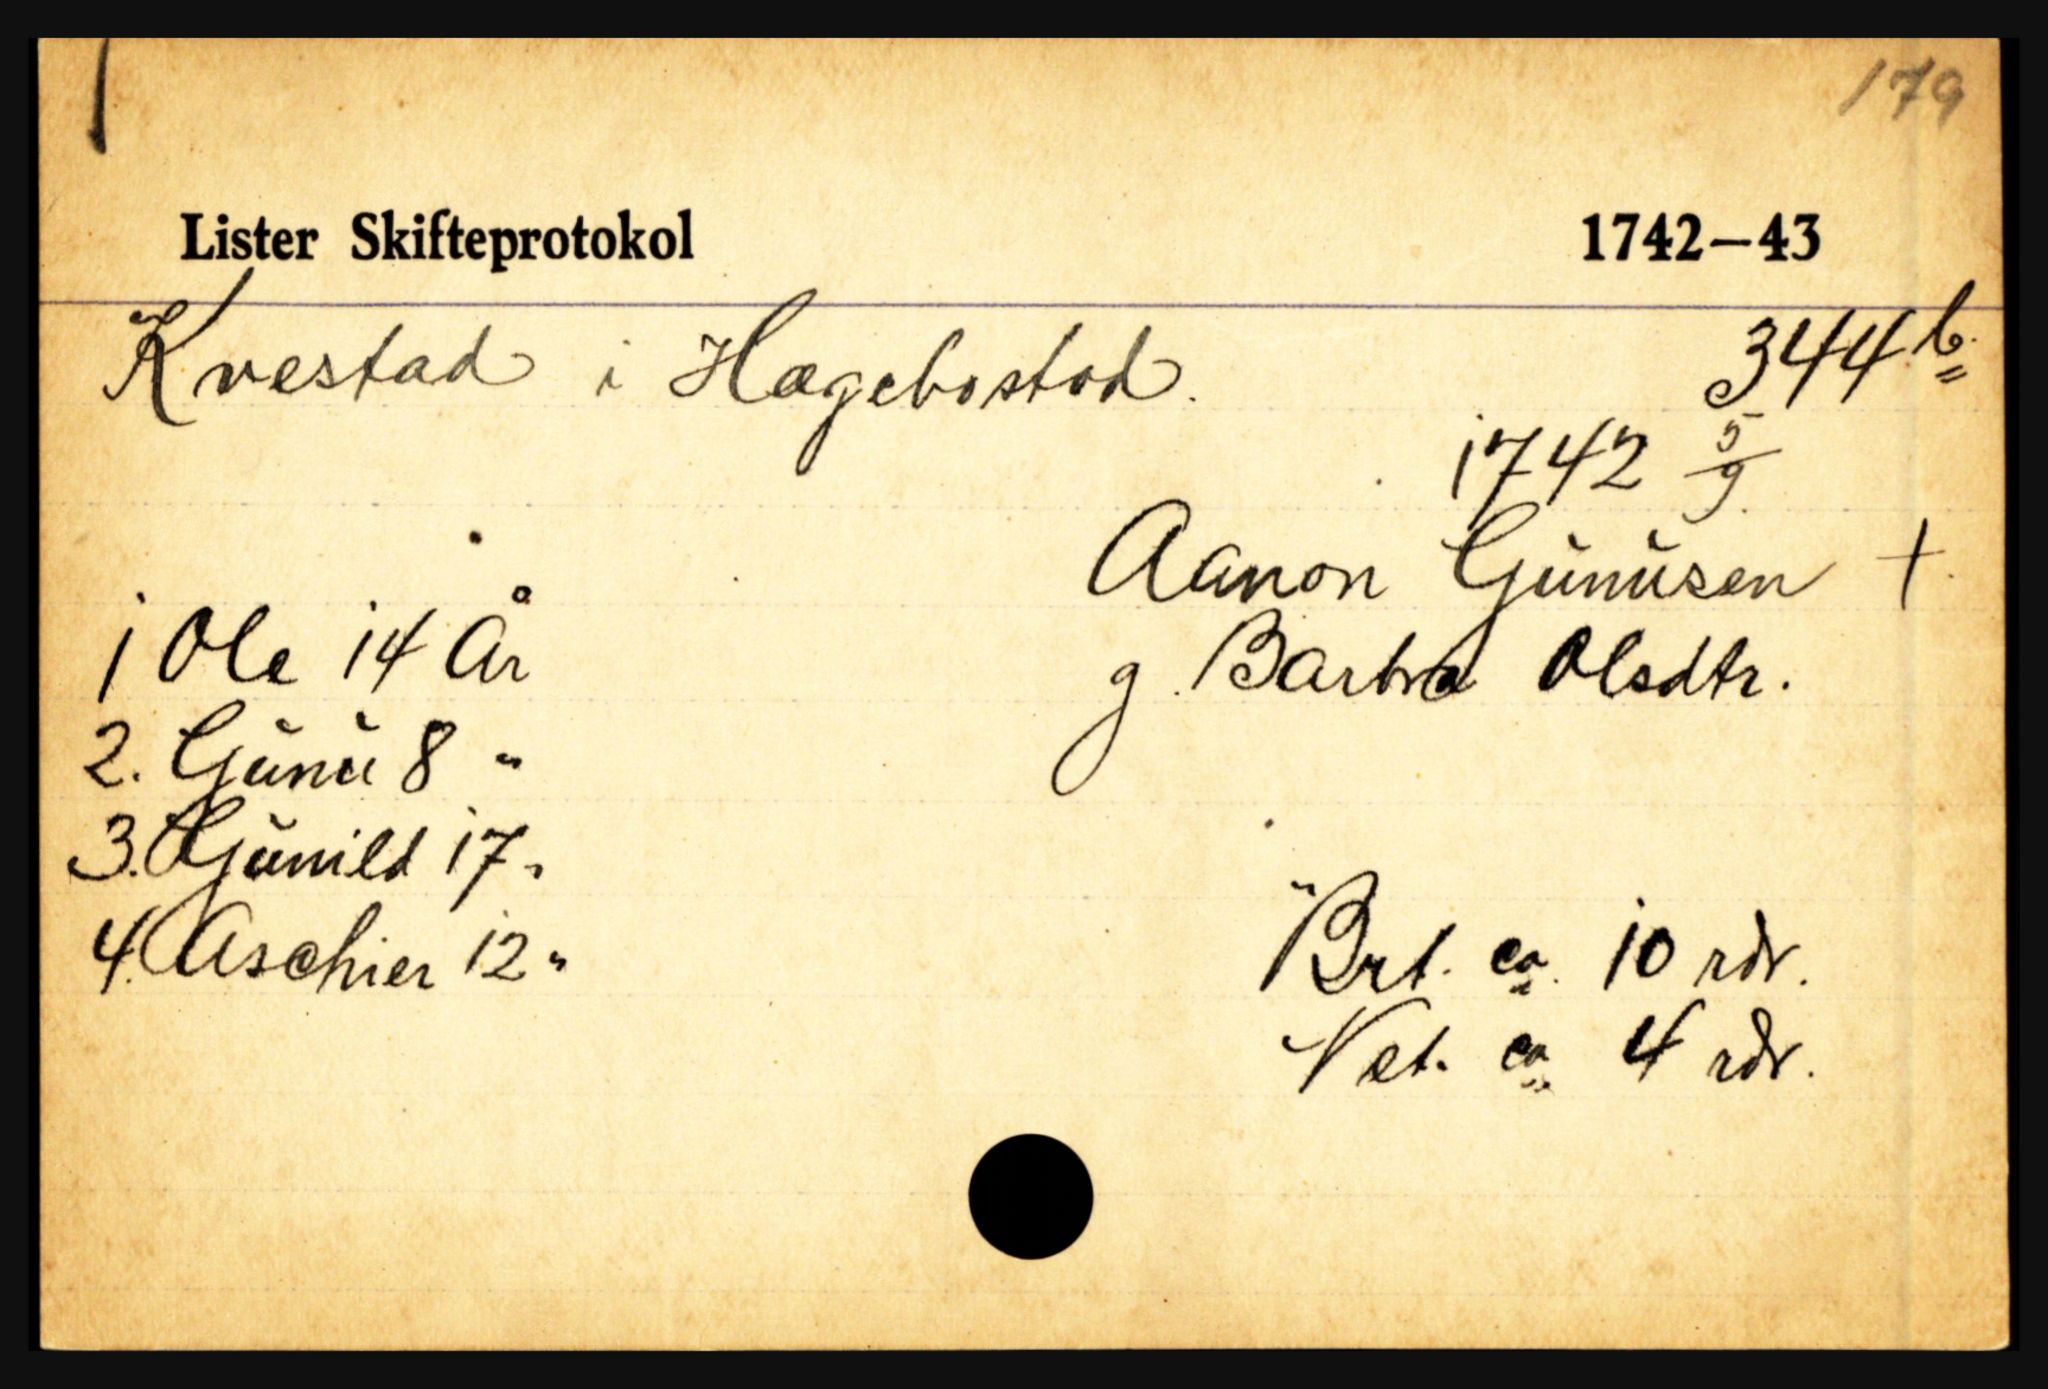 179
Lister Skifteprotokol 1742–43
Kvestad i Hægebostad. 344 b.
1742 5/9
Aanon Gunusen +
g. Barbra Olsdtr.
1 Ole 14 År
2. Gunu 8 "
3. Gunild 17 "
4. Aschier 12 "
Brt. ca. 10 rdr.
Net. ca 4 rdr.